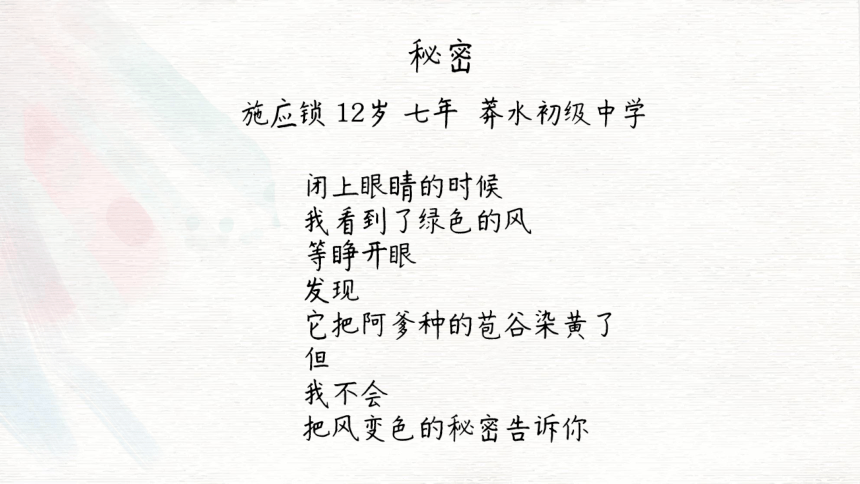 秘密
施应锁 12岁 七年 莽水初级中学
闭上眼睛的时候
我看到了绿色的风
等睁开眼
发现
它把阿爹种的苞谷染黄了
但
我不会
把风变色的秘密告诉你